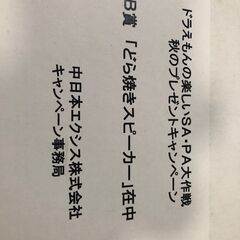 ドラえもんの楽しいSA・PA大作戦
秋のプレゼントキャンペーン
B賞 「どら焼きスピーカー」在中
中日本エクシス株式会社
キャンペーン事務局